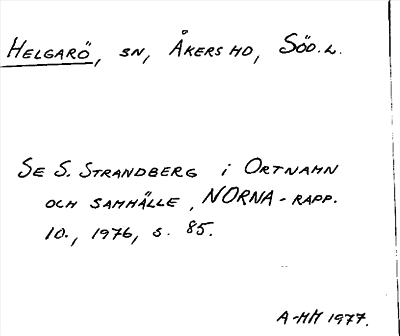 HELGARÖ, SN, ÅKERS HD, SÖD.L.
SE S. STRANDBERG i ORTNAMN
OCH SAMHÄLLE, NORNA-RAPP.
10., 1976, S. 85.
A-MM 1977.